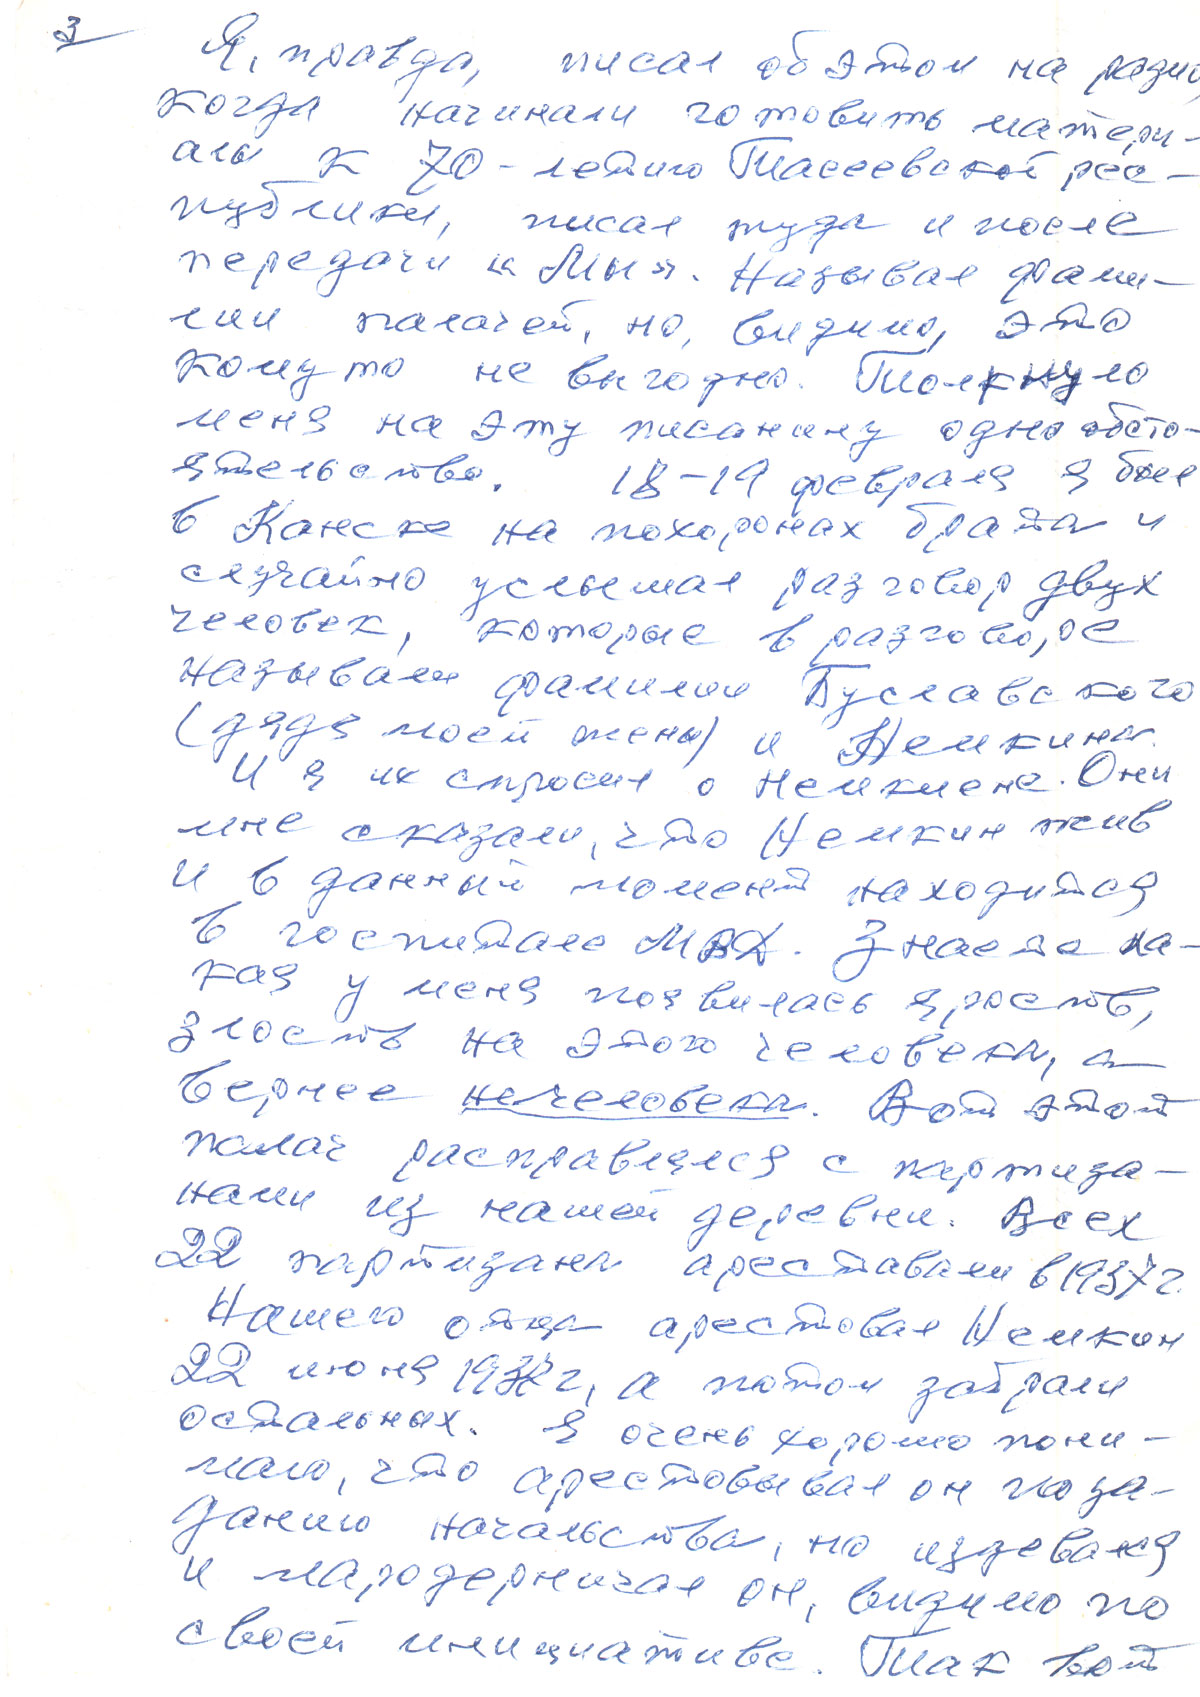 3
Я, правда, писал об этом на радио,
когда начинали готовить матери-
алы к 70-летию Тасеевской рес-
публики, писал туда и после
передачи «Мы». Называл фами-
лии палачей, но, видимо, это
кому то не выгодно. Толкнуло
меня на эту писанину одно обсто-
ятельство. 18-19 февраля я был
в Канске на похоронах брата и
случайно услышал разговор двух
человек, которые в разговоре
называли фамилии Буславского
(дядя моей жены) и Немкина.
И я их спросил о Немкине. Они
мне сказали, что Немкин жив
и в данный момент находится
в госпитале МВД. Знаете ка-
кая у меня появилась ярость,
злость на этого человека, а
вернее нечеловека. Вот этот
палач расправлялся с партиза-
нами из нашей деревни. Всех
22 партизанаареставали в 1937 г.
Нашего отца арестовал Немкин
22 июня г, а потом забрали
остальных. Я очень хорошо пони-
маю, что арестовывал он по за-
данию начальства, но издевался
и мародерничал он, видимо по
своей инициативе. Так вот